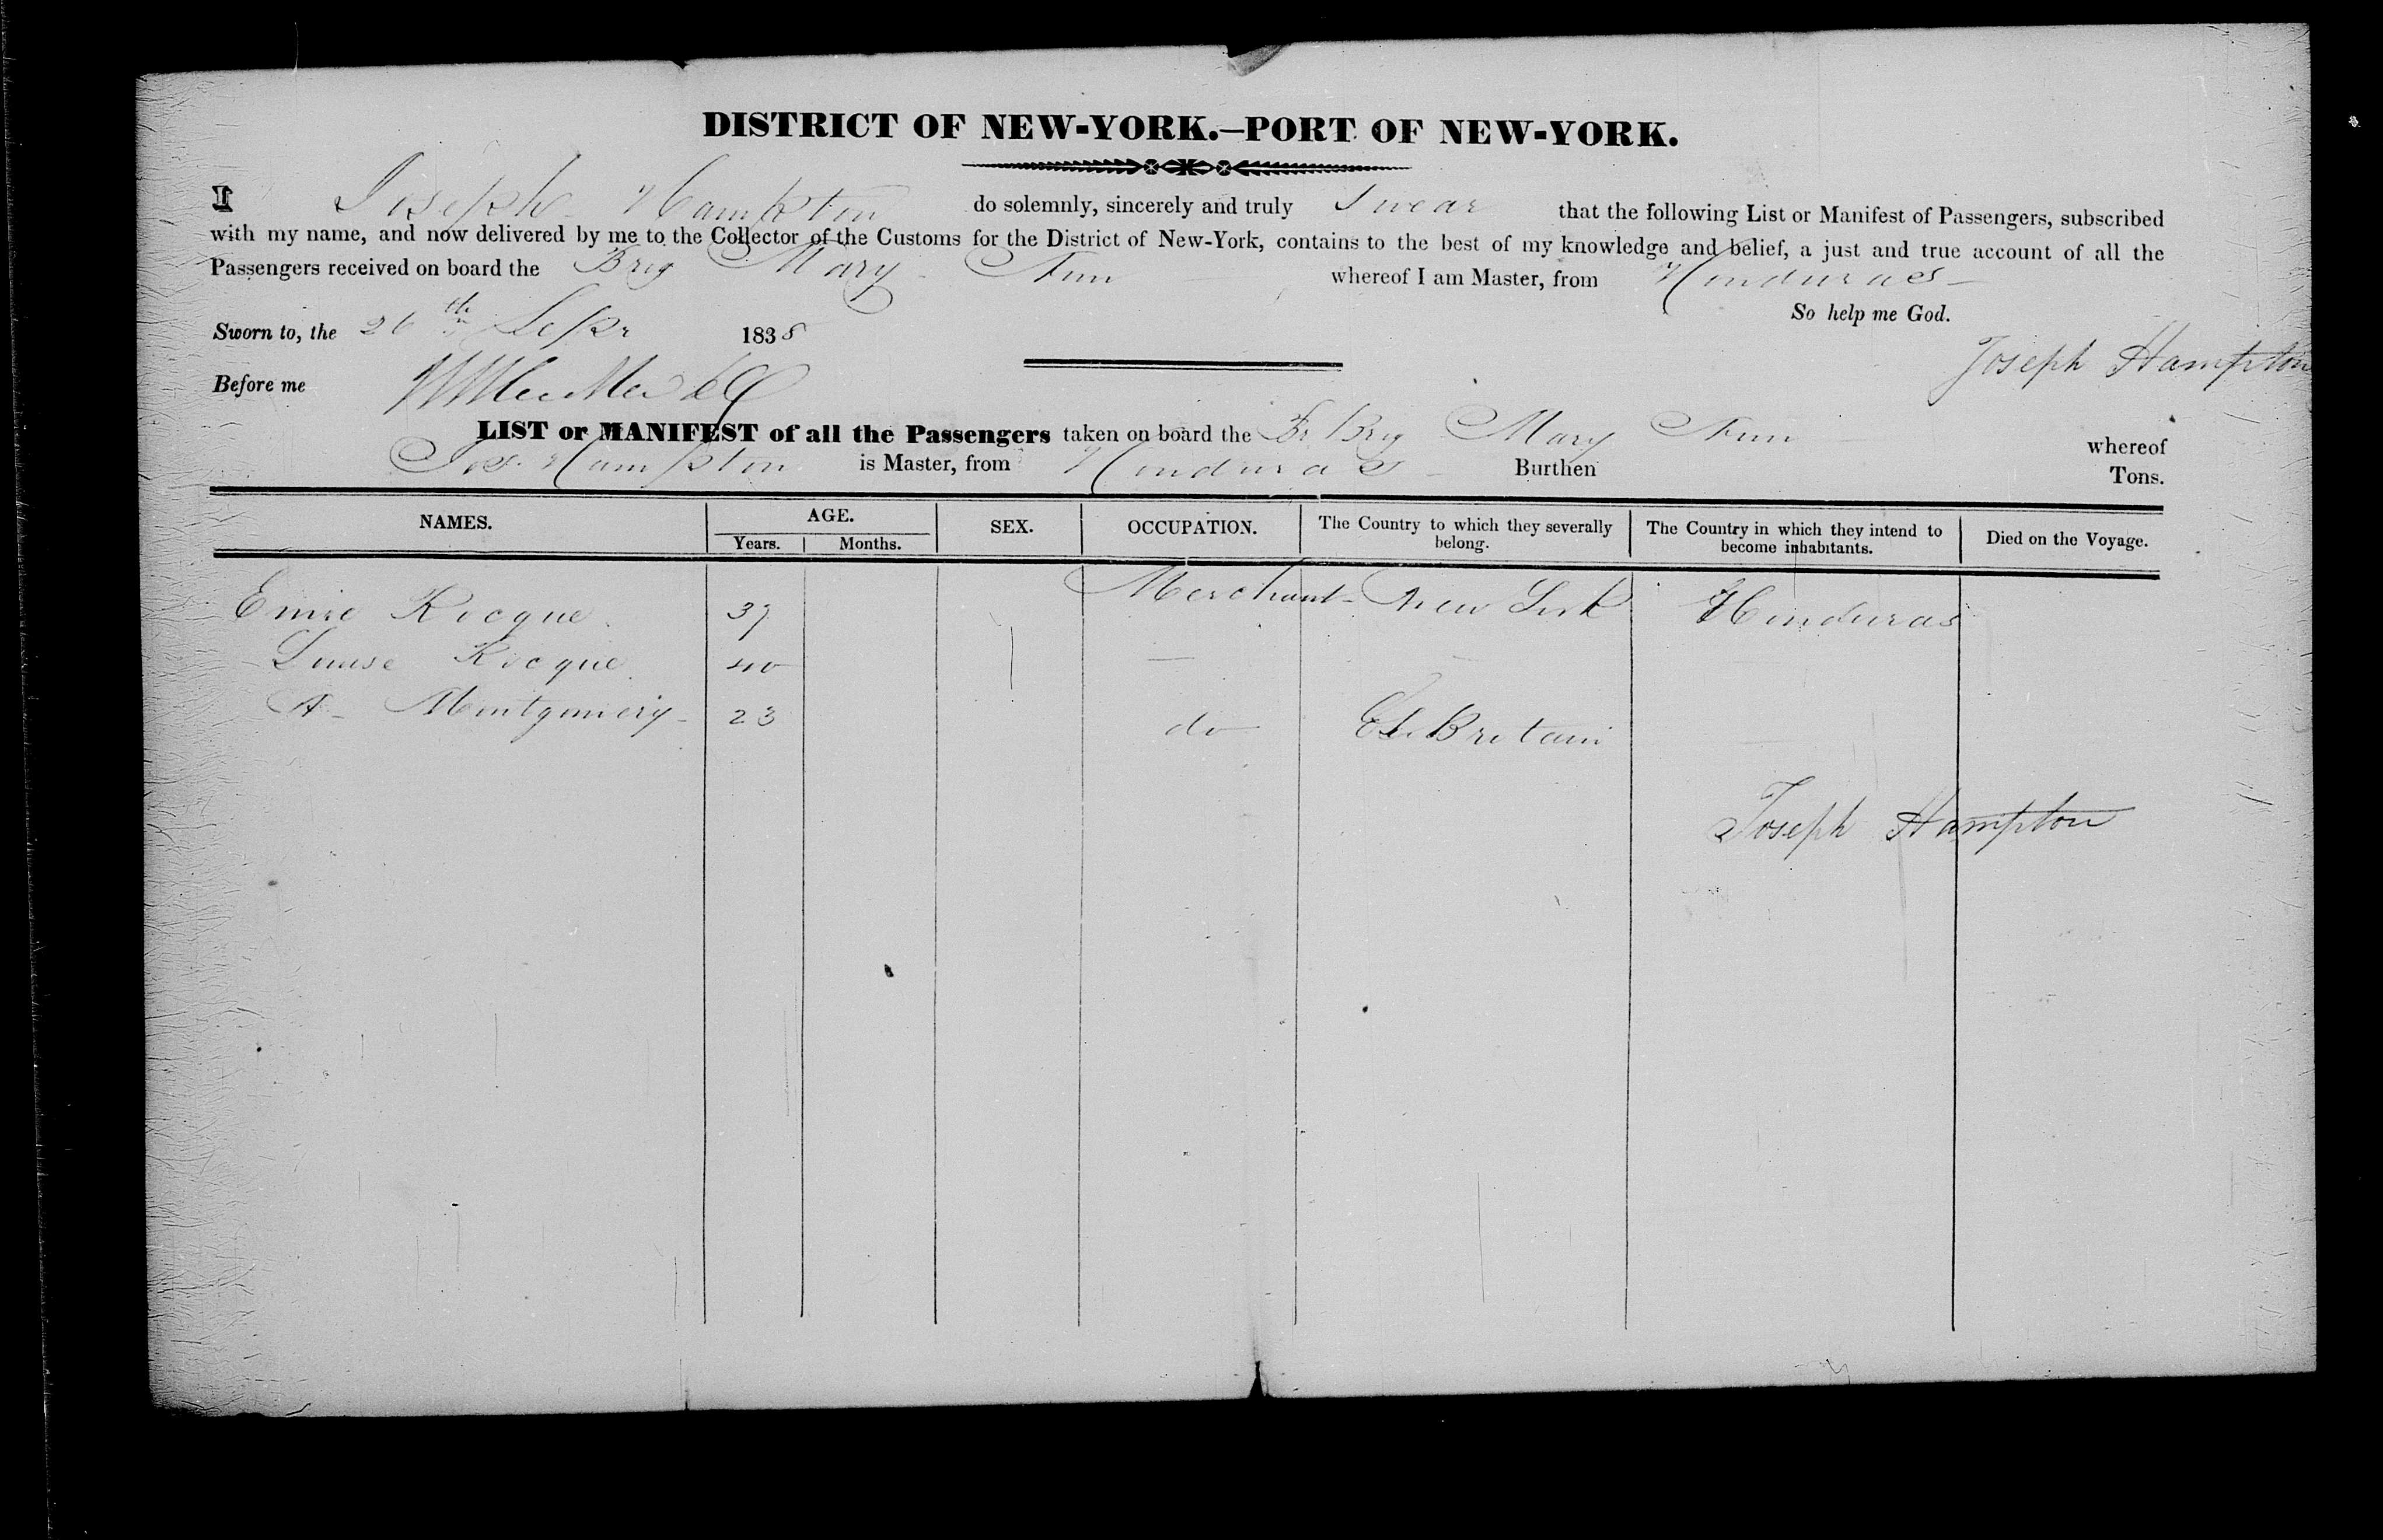 DISTRICT OF NEW-YORK.—PORT OF NEW-YORK.
I Joseph Hampton do solemnly, sincerely and truly Swear that the following List or Manifest of Passengers, subscribed
with my name, and now delivered by me to the Collector of the Customs for the District of New-York, contains to the best of my knowledge and belief, a just and true account of all the
Passengers received on board the Brig Mary Ann whereof I am Master, from Honduras
So help me God.
Sworn to, the 26th Sepr 1838
Joseph Hampton
Before me
LIST or MANIFEST of all the Passengers taken on board the Br Brig Mary Ann whereof
Jos. Hampton is Master, from Honduras Burthen Tons.
NAMES. AGE. SEX. OCCUPATION. The Country to which they severally belong. The Country in which they intend to become inhabitants. Died on the Voyage.
Years. Months.
Rocque 37 Merchant New York Honduras
Louise Rocque 40 —
A Montgomery 23 do Britain
Joseph Hampton